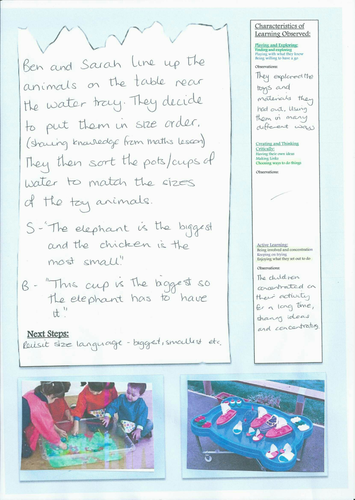 Ben and Sarah line up the
animals on the table near
the water tray. They decide
to put them in size order.
(sharing knowledge from maths lesson)
They then sort the pots/cups of
water to match the sizes
of the toy animals.
S - "The elephant is the biggest
and the chicken is the
most small."
B - "This cup is the biggest so
the elephant has to have
it."
Next Steps:
Revisit size language - biggest, smallest etc.
Characteristics of
Learning Observed:
Playing and Exploring:
Finding out and exploring
Playing with what they know
Being willing to have a go
Observations:
They explored the
toys and
materials they
had out, using
them in many
different ways
Creating and Thinking
Critically:
Having their own ideas
Making Links
Choosing ways to do things
Observations:
Active Learning:
Being involved and concentration
Keeping on trying
Enjoying what they set out to do
Observations
The children
concentrated on
their activity
for a long time,
sharing ideas
and concentrating